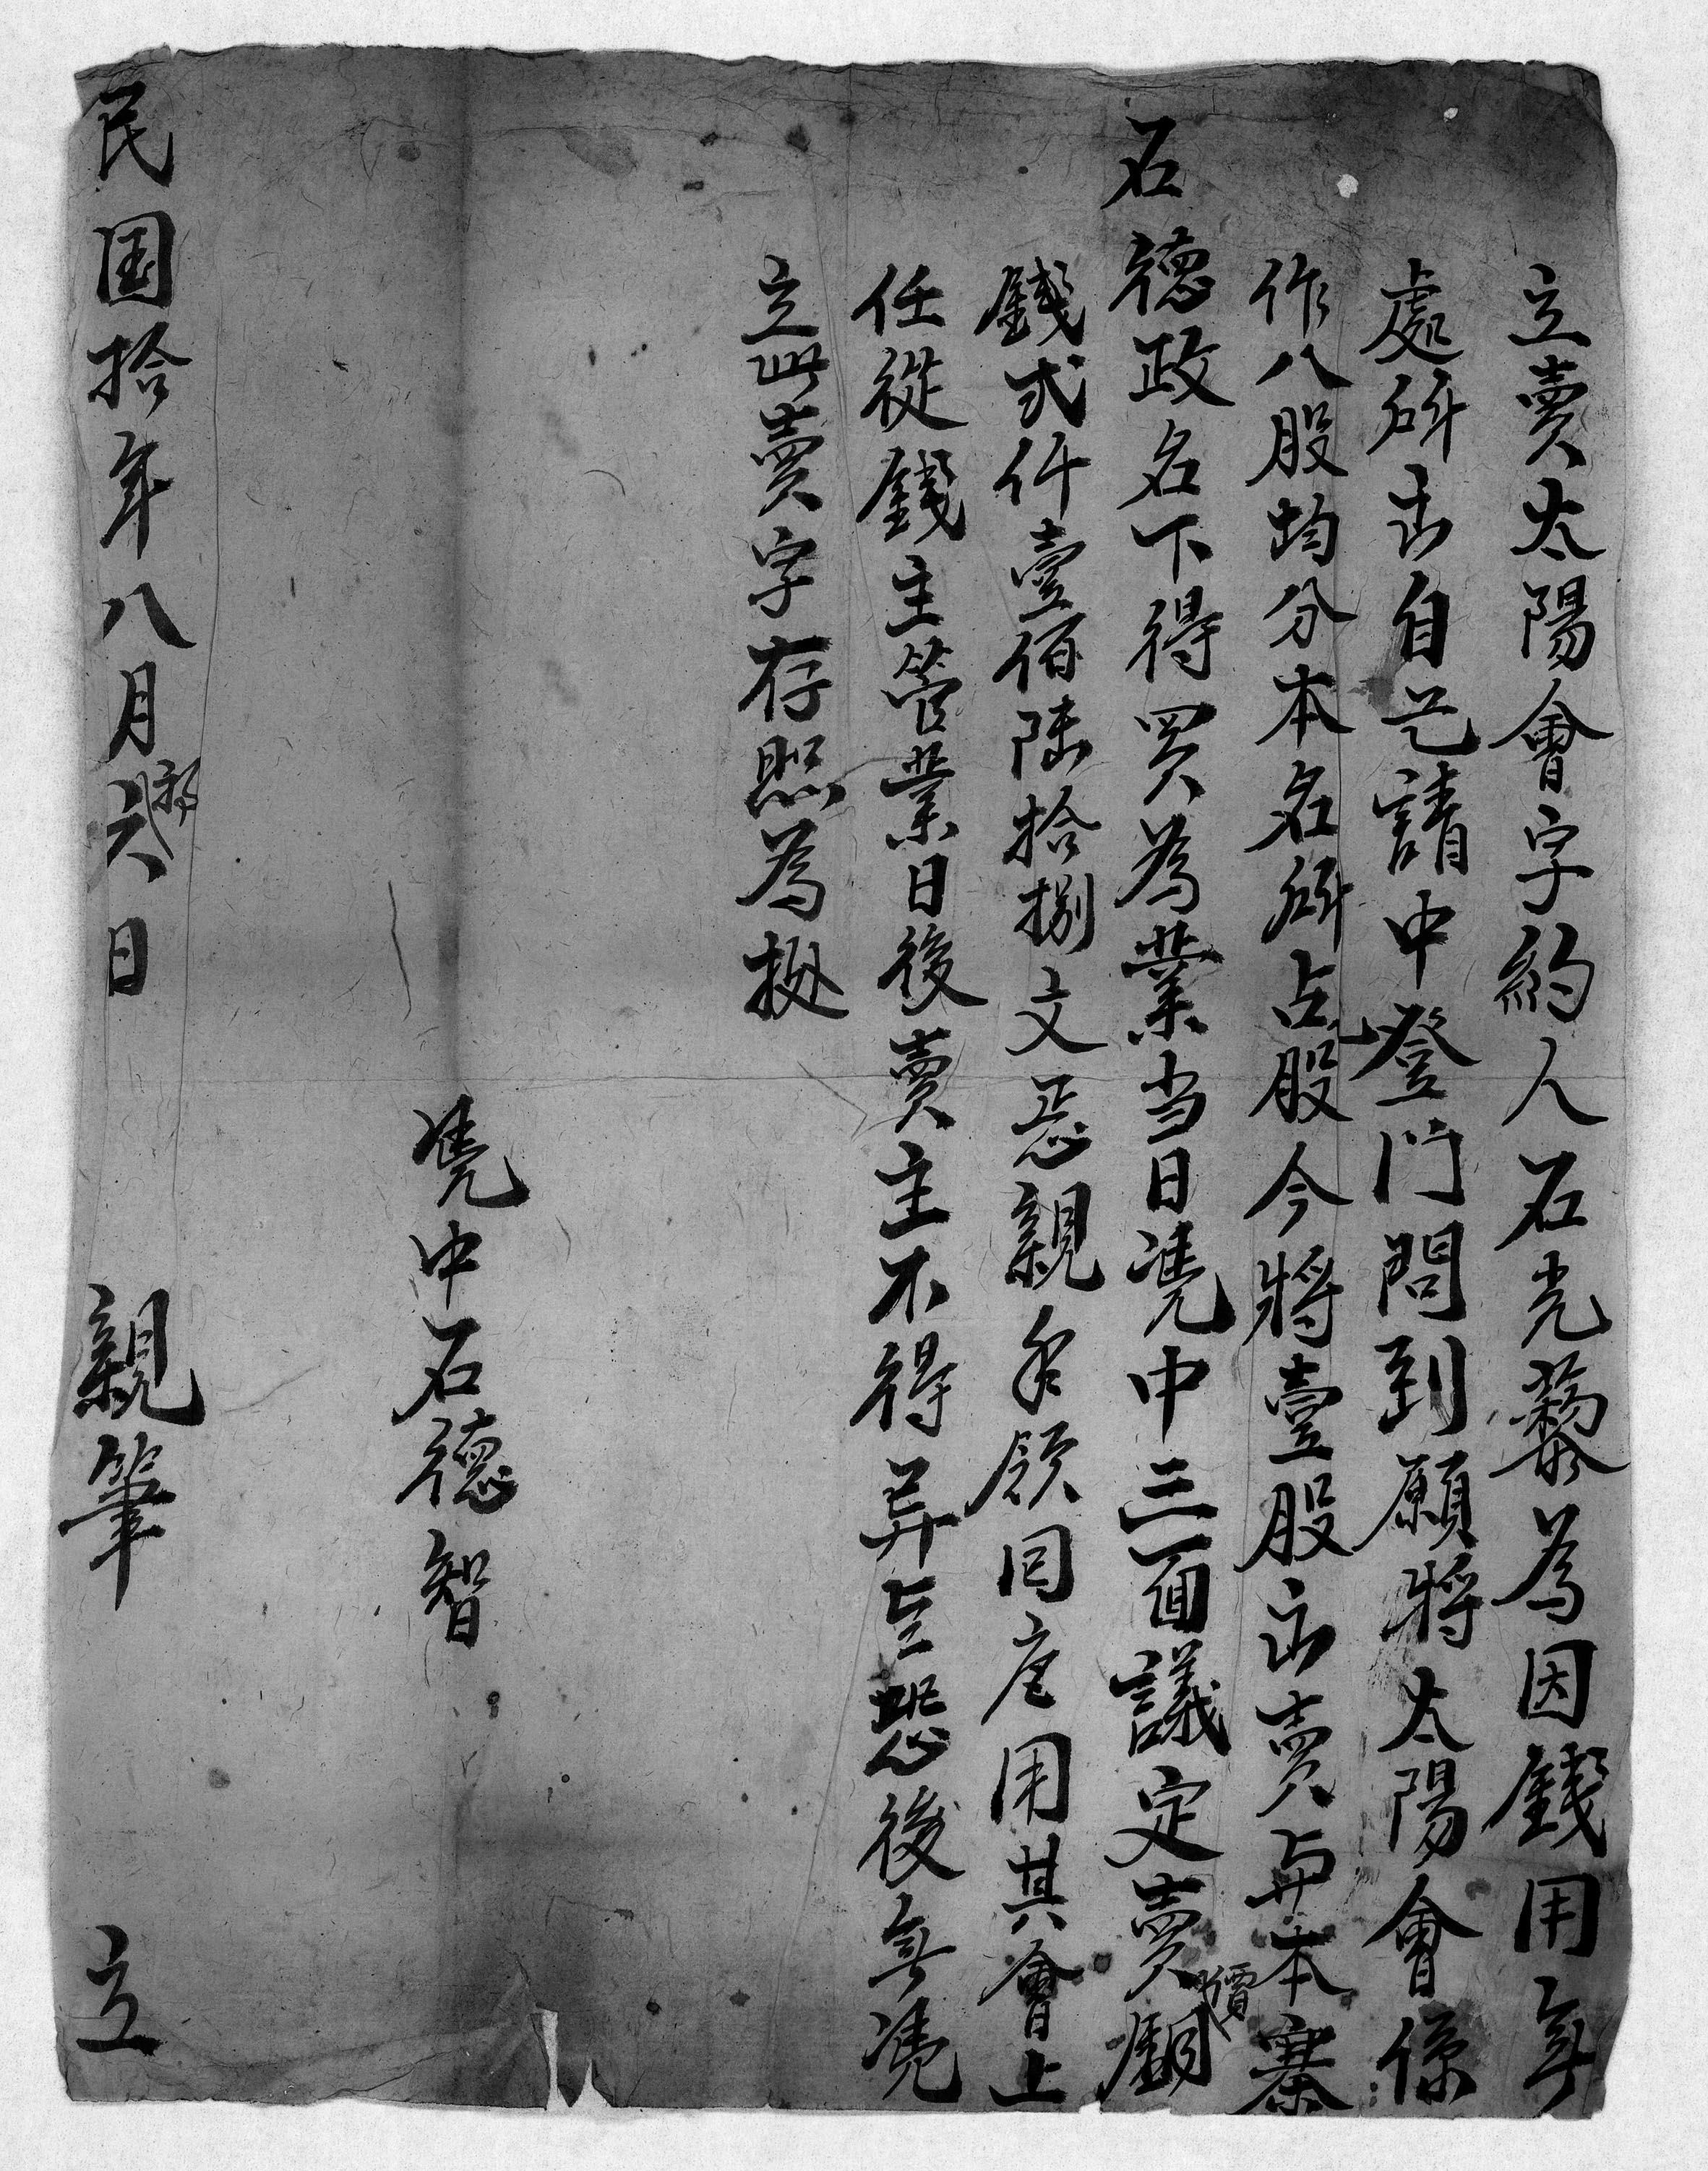 立賣太陽會字約人石光藜為因錢用無
處所出自己請中登門問到願將太陽會係
作八股均分本名所占股今將壹股出賣與本寨
石德政名下得買為業当日凴中三面議定賣價銅
錢弍仟壹佰陸拾捌文忘親手領回应用其會上
任從錢主管業日後賣主不得异言恐後無凴
立此賣字存照為據
凴中石德智
民国拾年八月初六日 親筆 立